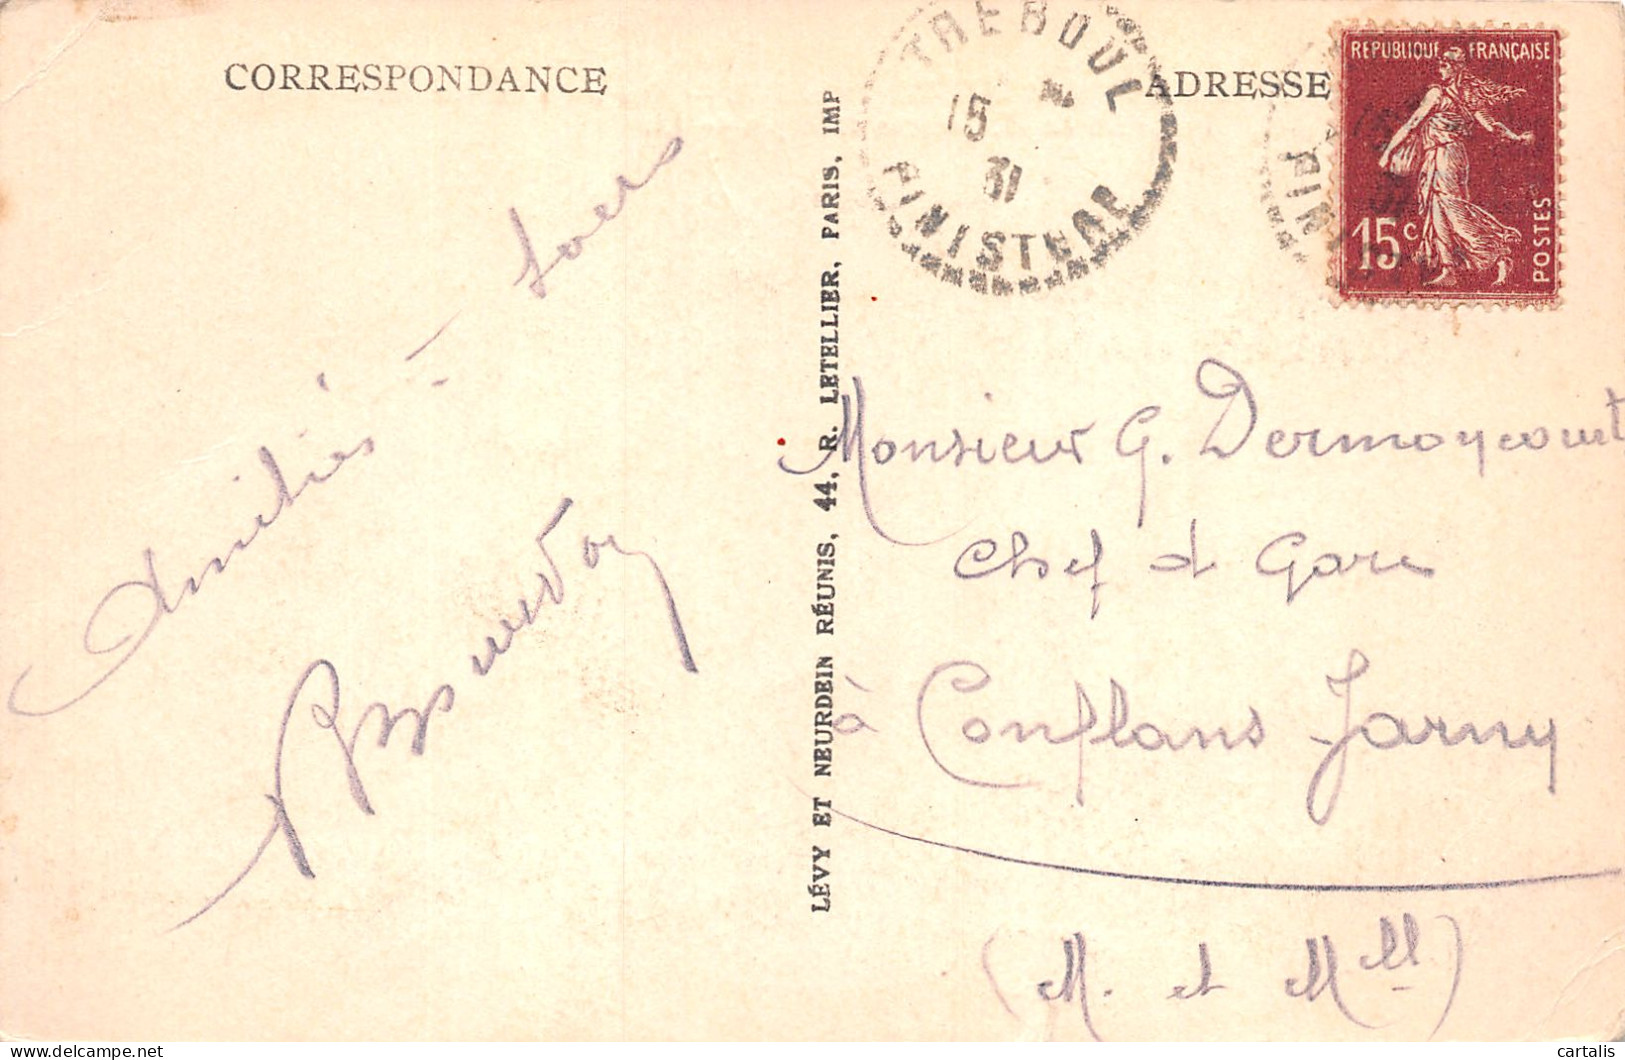 CORRESPONDANCE
ADRESSE
TREBOUL
15
31
FINISTERE
REPUBLIQUE FRANÇAISE
15c
POSTES
LÉVY ET NEURDEIN RÉUNIS, 44, R. LETELLIER, PARIS, IMP
Amitiés
Monsieur G. Dermoycourt
Chef de Gare
à Conflans Jarny
(M. et Mlle)
delcampe.net
cartalis